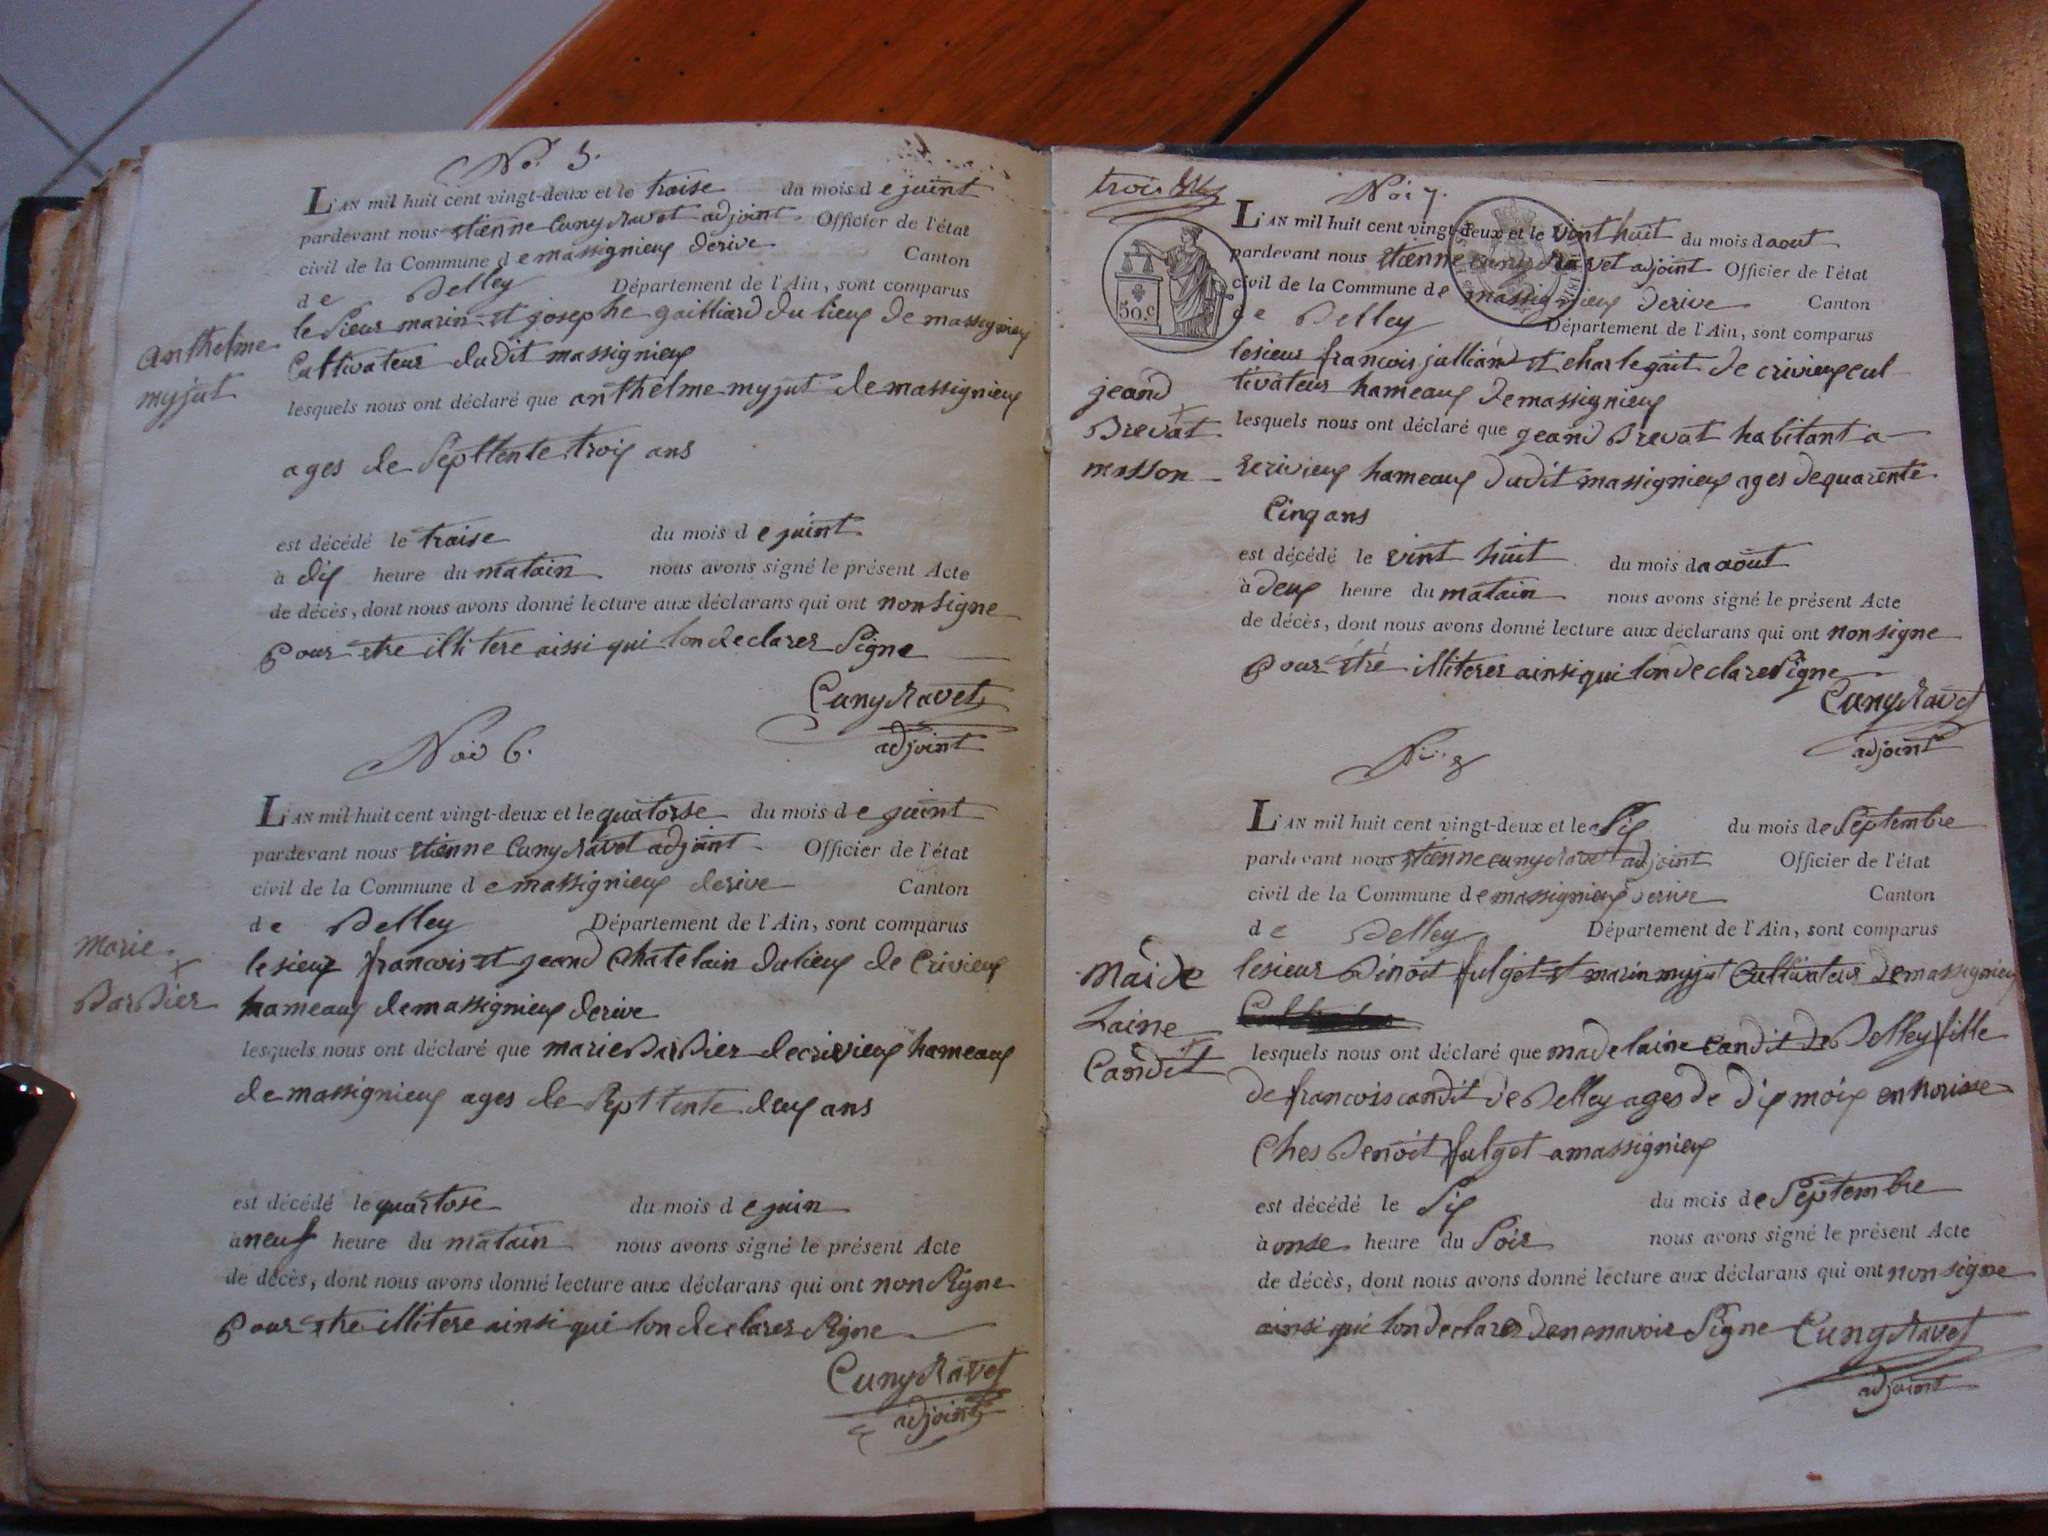 No. 5.
L'AN mil huit cent vingt-deux et le traise du mois d e juint
pardevant nous etienne Cuny Ravet adjoint Officier de l'état
civil de la Commune d e massignieux derive Canton
de Belley Département de l'Ain, sont comparus
le sieur marin et josephe gailliard du lieux de massignieux
Cultivateur dudit massignieux
lesquels nous ont déclaré que anthelme myjut de massignieux
ages de septtente trois ans
est décédé le traise du mois d e juint
à dix heure du matain nous avons signé le présent Acte
de décès, dont nous avons donné lecture aux déclarans qui ont non signe
pour etre illitere aissi qui lon declarer signe
Cuny Ravet
adjoint
anthelme
myjut
No 6.
L'AN mil huit cent vingt-deux et le quatorse du mois d e juint
pardevant nous etienne Cuny Ravet adjoint Officier de l'état
civil de la Commune d e massignieux derive Canton
de Belley Département de l'Ain, sont comparus
le sieur francois et jeand Chatelain du lieux de Crivieux
hameaux de massignieux derive
lesquels nous ont déclaré que marie Barbier de crivieux hameaux
de massignieux ages de septtente deux ans
est décédé le quartose du mois d e juin
à neuf heure du matain nous avons signé le présent Acte
de décès, dont nous avons donné lecture aux déclarans qui ont non signe
pour etre illitere ainsi qui lon declarer signe
Cuny Ravet
adjoint
marie
Barbier
trois
No 7.
50.c
L'AN mil huit cent vingt-deux et le vint huit du mois d aout
pardevant nous etienne cuny Ravet adjoint Officier de l'état
civil de la Commune de massignieux derive Canton
de Belley Département de l'Ain, sont comparus
le sieur francois julliand et charle gait de crivieux cul
tivateur hameaux de massignieux
lesquels nous ont déclaré que geand Brevat habitant a
ecrivieux hameaux dudit massignieux ages de quarente
Cinq ans
est décédé le vint huit du mois da aout
à deux heure du matain nous avons signé le présent Acte
de décès, dont nous avons donné lecture aux déclarans qui ont non signe
pour étré illiterer ainsi qui lon declare signe
Cuny Ravet
adjoint
jeand
Brevat
masson
No 8
L'AN mil huit cent vingt-deux et le six du mois de septembre
pardevant nous etienne cuny Ravet adjoint Officier de l'état
civil de la Commune de massignieux derive Canton
de Belley Département de l'Ain, sont comparus
le sieur Benoit fulget et marin myjut Cultivateur de massignieux
lesquels nous ont déclaré que madelaine candit de Belley fille
de francois candit de Belley ages de dix moix en norisse
Ches Benoit fulget a massignieux
est décédé le six du mois de septembre
à onse heure du soir nous avons signé le présent Acte
de décès, dont nous avons donné lecture aux déclarans qui ont non signe
ainsi qui lon declarer denenavoir signe Cuny Ravet
adjoint
Maide
Laine
Candit